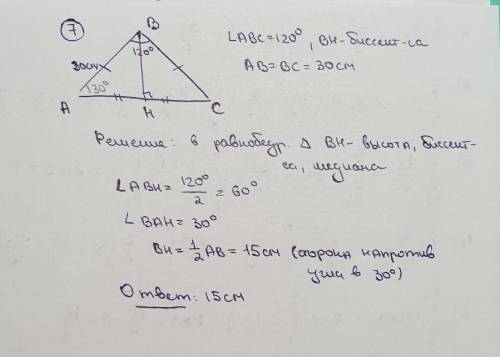 7
B
120°
30см
30°
A
H
C
∠ABC=120°, BH-биссент-са
AB=BC=30см
Решение: в равнобедр. Δ BH- высота, биссент-
са, медиана
∠ABH= 120°/2 = 60°
∠BAH=30°
BH=1/2 AB=15см (сторона напротив
угла в 30°)
Ответ: 15см